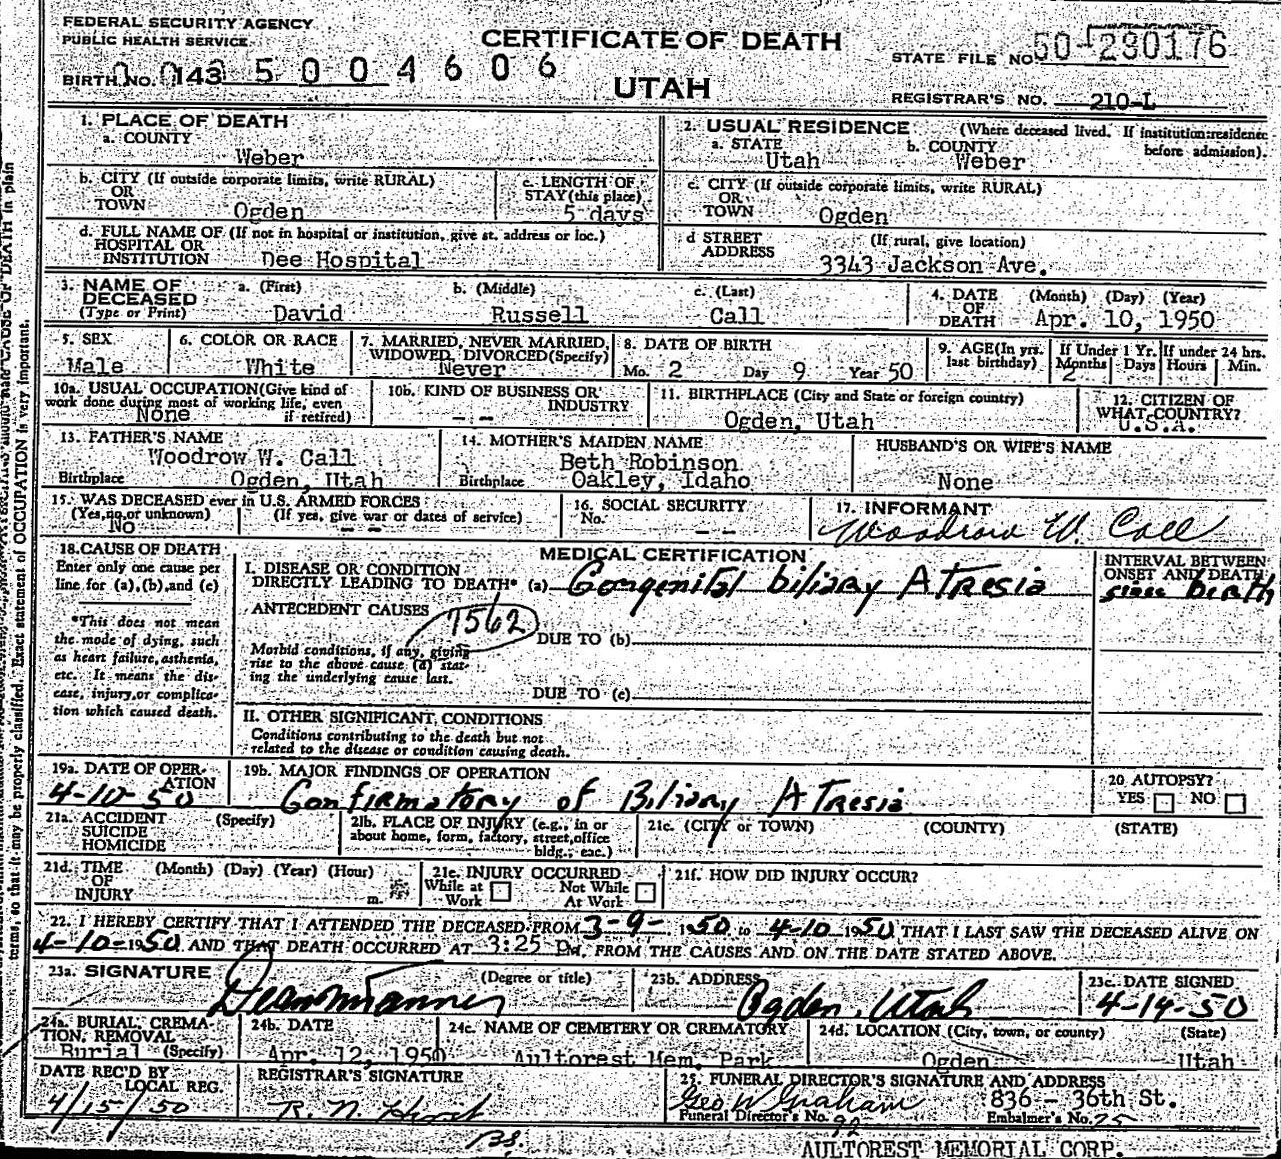 FEDERAL SECURITY AGENCY
PUBLIC HEALTH SERVICE
CERTIFICATE OF DEATH
UTAH
STATE FILE NO. 50-290176
BIRTH NO. 143 5004606
REGISTRAR'S NO. 210-L
1. PLACE OF DEATH
a. COUNTY
Weber
2. USUAL RESIDENCE (Where deceased lived. If institution: residence before admission).
a. STATE Utah b. COUNTY Weber
b. CITY (If outside corporate limits, write RURAL)
OR
TOWN Ogden
c. LENGTH OF
STAY (this place)
5 days
c. CITY (If outside corporate limits, write RURAL)
OR
TOWN Ogden
d. FULL NAME OF (If not in hospital or institution, give st. address or loc.)
HOSPITAL OR
INSTITUTION Dee Hospital
d STREET (If rural, give location)
ADDRESS 3343 Jackson Ave.
3. NAME OF DECEASED (Type or Print)
a. (First) b. (Middle) c. (Last)
David Russell Call
4. DATE OF DEATH (Month) (Day) (Year)
Apr. 10, 1950
5. SEX
Male
6. COLOR OR RACE
White
7. MARRIED, NEVER MARRIED,
WIDOWED, DIVORCED (Specify)
Never
8. DATE OF BIRTH
Mo. 2 Day 9 Year 50
9. AGE (In yrs. last birthday)
If Under 1 Yr. If under 24 hrs.
Months Days Hours Min.
2
10a. USUAL OCCUPATION (Give kind of
work done during most of working life, even
if retired)
None
10b. KIND OF BUSINESS OR
INDUSTRY
- -
11. BIRTHPLACE (City and State or foreign country)
Ogden, Utah
12. CITIZEN OF
WHAT COUNTRY?
U.S.A.
13. FATHER'S NAME
Woodrow W. Call
Birthplace Ogden, Utah
14. MOTHER'S MAIDEN NAME
Beth Robinson
Birthplace Oakley, Idaho
HUSBAND'S OR WIFE'S NAME
None
15. WAS DECEASED ever in U.S. ARMED FORCES
(Yes, no, or unknown) (If yes, give war or dates of service)
No - -
16. SOCIAL SECURITY
No. - -
17. INFORMANT
Woodrow W. Call
18. CAUSE OF DEATH
Enter only one cause per
line for (a), (b), and (c)
*This does not mean
the mode of dying, such
as heart failure, asthenia,
etc. It means the dis-
ease, injury, or complica-
tion which caused death.
MEDICAL CERTIFICATION
I. DISEASE OR CONDITION
DIRECTLY LEADING TO DEATH* (a) Congenital biliary Atresia
INTERVAL BETWEEN
ONSET AND DEATH
since birth
ANTECEDENT CAUSES
7562
DUE TO (b)
Morbid conditions, if any, giving
rise to the above cause (a) stat-
ing the underlying cause last.
DUE TO (c)
II. OTHER SIGNIFICANT CONDITIONS
Conditions contributing to the death but not
related to the disease or condition causing death.
19a. DATE OF OPER-
ATION
4-10-50
19b. MAJOR FINDINGS OF OPERATION
Confirmatory of Biliary Atresia
20 AUTOPSY?
YES NO
21a. ACCIDENT (Specify)
SUICIDE
HOMICIDE
21b. PLACE OF INJURY (e.g., in or
about home, form, factory, street, office
bldg., etc.)
21c. (CITY or TOWN) (COUNTY) (STATE)
21d. TIME (Month) (Day) (Year) (Hour)
OF
INJURY m.
21e. INJURY OCCURRED
While at Work Not While At Work
21f. HOW DID INJURY OCCUR?
22. I HEREBY CERTIFY THAT I ATTENDED THE DECEASED FROM 3-9- 1950 to 4-10 1950 THAT I LAST SAW THE DECEASED ALIVE ON
4-10-1950 AND THAT DEATH OCCURRED AT 3:25 Pm, FROM THE CAUSES AND ON THE DATE STATED ABOVE.
23a. SIGNATURE (Degree or title)
23b. ADDRESS
Ogden, Utah
23c. DATE SIGNED
4-14-50
24a. BURIAL, CREMA-
TION, REMOVAL
Burial (Specify)
24b. DATE
Apr. 12, 1950
24c. NAME OF CEMETERY OR CREMATORY
Aultorest Mem. Park
24d. LOCATION (City, town, or county) (State)
Ogden Utah
DATE REC'D BY
LOCAL REG.
4/15/50
REGISTRAR'S SIGNATURE
R. N. Hirst
25. FUNERAL DIRECTOR'S SIGNATURE AND ADDRESS
Geo W Graham 836 - 36th St.
Funeral Director's No. 92 Embalmer's No. 75
AULTOREST MEMORIAL CORP.
terms, so that it may be properly classified. Exact statement of OCCUPATION is very important.
CAUSE OF DEATH in plain